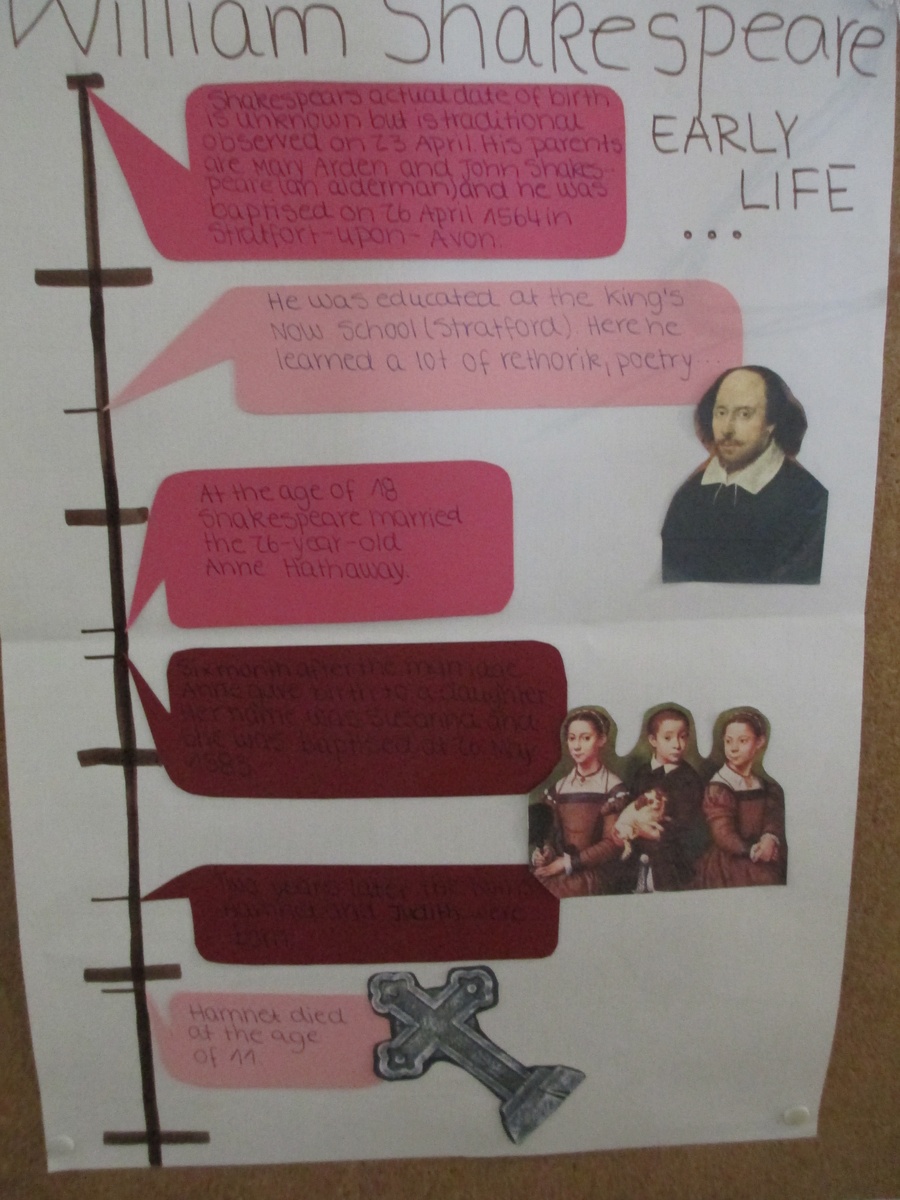 William Shakespeare
EARLY
LIFE
...
Shakespears actual date of birth
is unknown but is traditional
observed on 23 April His parents
are Mary Arden and John Shakes-
peare (an alderman) and he was
baptised on 26 April 1564 in
Stratfort-upon-Avon.
He was educated at the king's
NOW School (Stratford). Here he
learned a lot of rethorik, poetry ...
At the age of 18
Shakespeare married
the 26-year-old
Anne Hathaway.
Six month after the marriage
Anne gave birth to a daughter
Her name was Susanna and
she was baptised at 26 May
1583.
Two years later the twins
Hamnet and Judith were
born.
Hamnet died
at the age
of 11.